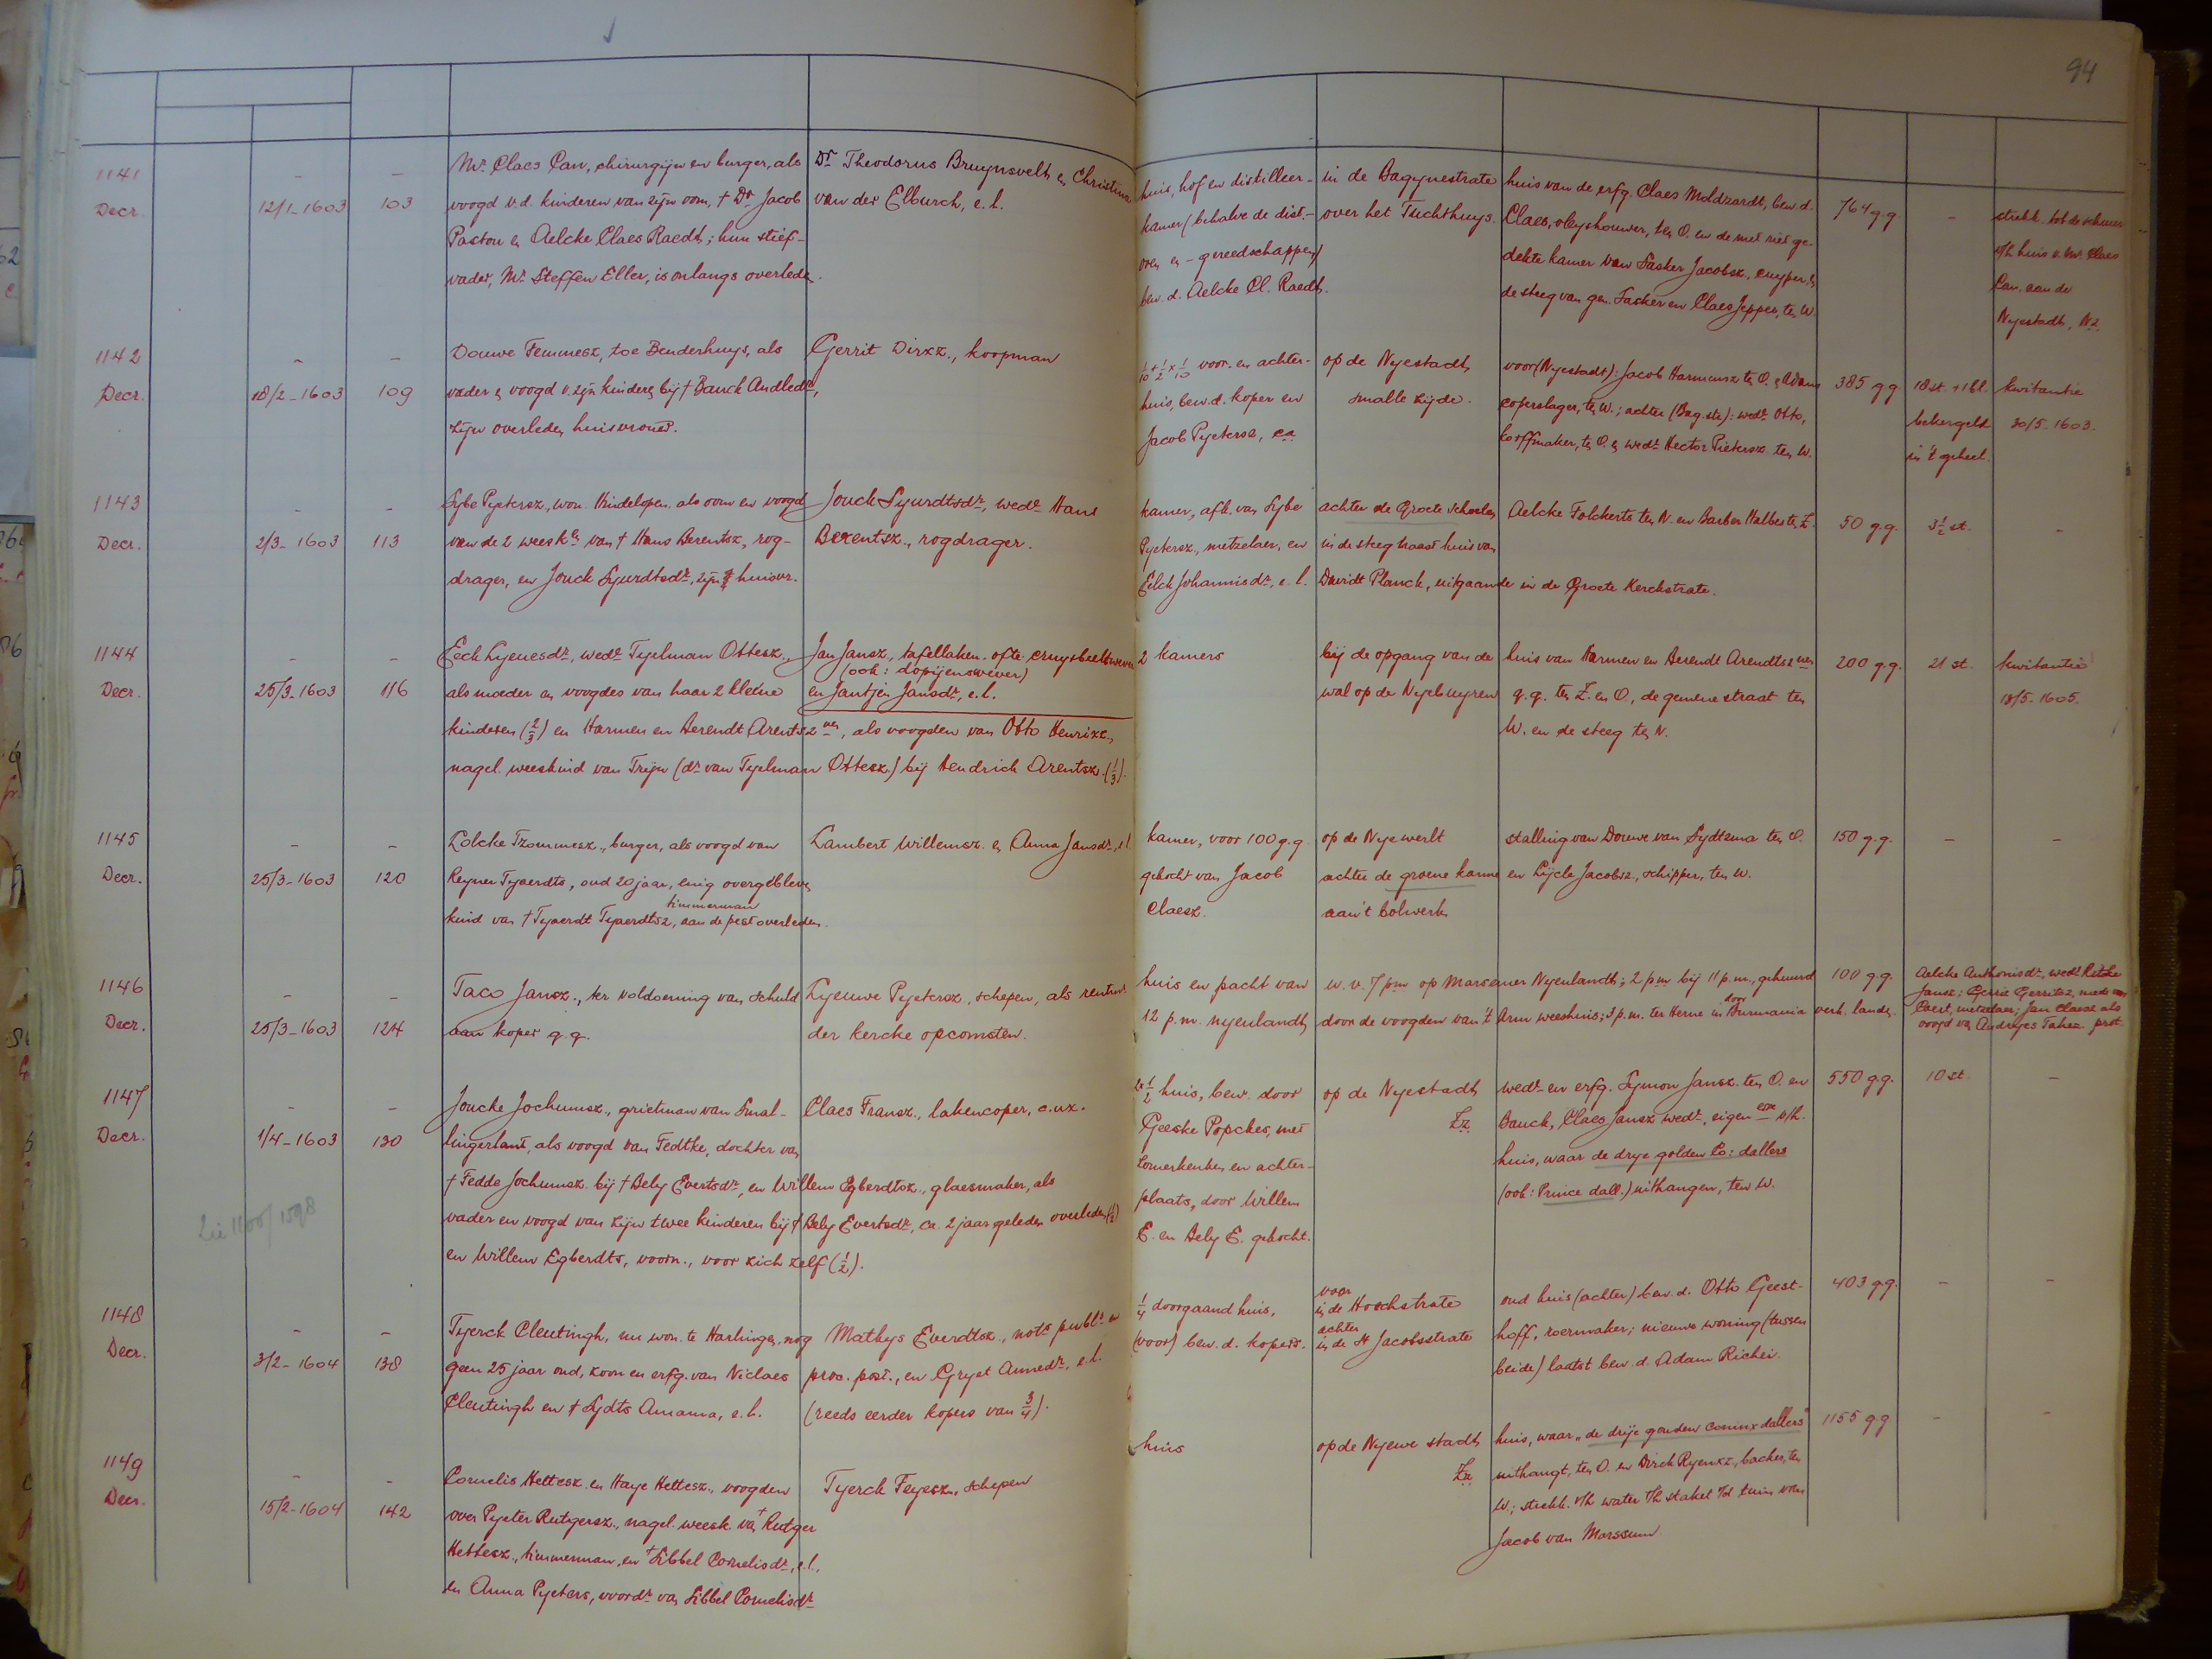 94
1141
Decr.
12/1-1603
103
Mr. Claes Pan, chirurgijn en burger, als
voogd v.d. kinderen van zijn oom, † Dr Jacob
Paston en Aelcke Claes Raedt; hun stief-
vader, Mr. Steffen Eller, is onlangs overleden.
Dr Theodorus Bruynsvelt en Christina
van der Elburch, e.l.
huis, hof en distilleer-
kamer (behalve de dist.-
oven en -gereedschappen)
bew. d. Aelcke Cl. Raedt.
in de Bagynestrate
over het Tuchthuys.
huis van de erfg. Claes Moldzardt, bew. d.
Claes, oleyshouwer, ten O. en de met riet ge-
dekte kamer van Sasker Jacobsz, cuyper, en
de steeg van gen. Sasker en Claes Jeppes, ten W.
764 g.g.
-
strekk. tot de schuur
v/h huis v. Mr. Claes
Pan. aan de
Nyestadt, Nz.
1142
Decr.
18/2-1603
109
Douwe Femmesz, toe Benderhuys, als
vader en voogd v. zijn kinderen bij † Bauck Andledr,
zijn overleden huisvrouw.
Gerrit Dirxz., koopman
1/10 + 1/2 x 1/10 voor- en achter-
huis, bew. d. koper en
Jacob Pyetersz, ca
op de Nyestadt,
smalle zijde.
voor (Nyestadt): Jacob Harmensz ten O. en Adam
coperslager, ten W.; achter (Bag.str.): wedr. Otto,
korffmaker, ten O. en wedr. Hector Pietersz. ten W.
385 g.g.
18 st. + 1 bl.
bekergeld
in 't geheel.
kwitantie
30/5-1603.
1143
Decr.
2/3-1603
113
Sybe Pyetersz., won. Hindelopen, als oom en voogd
van de 2 weeskn van † Hans Berentsz, rog-
drager, en Jouck Syurdtsdr, zijn huisvr.
Jouck Syurdtsdr, wedr Hans
Berentsz., rogdrager.
kamer, afk. van Sybe
Pyetersz., metzelaer, en
Eelck Johannisdr, e.l.
achter de Groete Schoelen
in de steeg naast huis van
Davidt Planck, uitgaande in de Groete Kerckstrate.
Aelcke Folckerts ten N. en Barber Halbes ten Z.
50 g.g.
3 1/2 st.
-
1144
Decr.
25/3-1603
116
Eeck Lyeuesdr, wedr Tyelman Ottesz.,
als moeder en voogdes van haar 2 kleine
kinderen (2/3) en Harmen en Berendt Arentszen, als voogden van Otto Henrixz.,
nagel. weeskind van Trijn (dr van Tyelman Ottesz.) bij Hendrick Arentsz. (1/3).
Jan Jansz., tafellaken- ofte cruysbeeltswever
(ook: dopijenswever)
en Jantjen Jansdr, e.l.
2 kamers
bij de opgang van de
wal op de Nyebuyren
huis van Harmen en Berendt Arendtszen
q.q. ten Z. en O., de gemene straat ten
W. en de steeg ten N.
200 g.g.
21 st.
kwitantie
18/5-1605.
1145
Decr.
25/3-1603
120
Lolcke Tzommesz., burger, als voogd van
Reyner Tyaerdts, oud 20 jaar, enig overgebleven
timmerman
kind van † Tyaerdt Tyaerdtsz, aan de pest overleden.
Lambert Willemsz. en Anna Jansdr, e.l.
kamer, voor 100 g.g.
gekocht van Jacob
Claesz.
op de Nyewerlt
achter de groene kanne
aan 't bolwerk
stalling van Douwe van Sydtzma ten O.
en Lijcle Jacobsz., schipper, ten W.
150 g.g.
-
-
1146
Decr.
25/3-1603
124
Taco Jansz., ter voldoening van schuld
aan koper q.q.
Lyeuwe Pyetersz., schepen, als rentmr
der kercke opcomsten.
huis en pacht van
12 p.m. nyenlandt,
w.v. 7 pm op Marsumer Nyenlandt; 2 pm bij 11 p.m., gehuurd
door de voogden van 't Arm weeshuis; 3 p.m. ter Herne in door Burmania verh. lande.
100 g.g.
Aelcke Anthonisdr, wedr Ritske
Jansz; Gerrit Gerritsz, mede
Evert, metselaer; Jan Claesz als
voogd van Andryes Takes. prot.
1147
Decr.
1/4-1603
130
Zie 1100/1598
Joucke Jochumsz., grietman van Smal-
lingerlant, als voogd van Tedtke, dochter van
† Fedde Jochumsz bij † Bely Evertsdr, en Willem Egberdtsz., glaesmaker, als
vader en voogd van zijn twee kinderen bij † Bely Evertsdr, ca. 2 jaar geleden overleden (1/2)
en Willem Egberdts, voorn., voor zich zelf (1/2).
Claes Fransz., lakencoper, c.ux.
huis, bew. door
Geeske Popckes, met
somerkeuken en achter-
plaats, door Willem
E. en Bely E. gekocht.
op de Nyestadt
Zz
wedr en erfg. Symon Jansz. ten O. en
Bauck, Claes Jansz wedr, eigen v/h.
huis, waar de drye golden Co: dallers
(ook: Prince dall.) uithangen, ten W.
550 g.g.
10 st.
-
1148
Decr.
3/2-1604
138
Tyerck Cleutingh, nu won. te Harlingen, nog
geen 25 jaar oud, zoon en erfg. van Niclaes
Cleutingh en † Sydts Amama, e.l.
Mathys Everdtsz., nots publs en
proc. post., en Gryet Annedr, e.l.
(reeds eerder kopers van 3/4).
1/4 doorgaand huis,
(voor) bew. d. kopers.
voor
in de Hoochstrate
achter
in de St Jacobsstrate
oud huis (achter) bew. d. Otto Geest-
hoff, roermaker; nieuwe woning (tussen
beide) laatst bew. d. Adam Richei.
403 g.g.
-
-
1149
Decr.
15/2-1604
142
Cornelis Hettesz. en Haye Hettesz., voogden
over Pyeter Rutgersz., nagel. weesk. van † Rutger
Hettesz., timmerman, en † Sibbel Cornelisdr, e.l.,
en Anna Pyeters, voordr van Sibbel Cornelisdr
Tyerck Feyesz., schepen
huis
op de Nyewe stadt
Zz
huis, waar „de drije gouden Coninx dallers"
uithangt, ten O. en Dirck Ryenxz, backer, ten
W.; strekk. v/h water t/h stakel v/d tuin van
Jacob van Marssum.
1155 g.g.
-
-